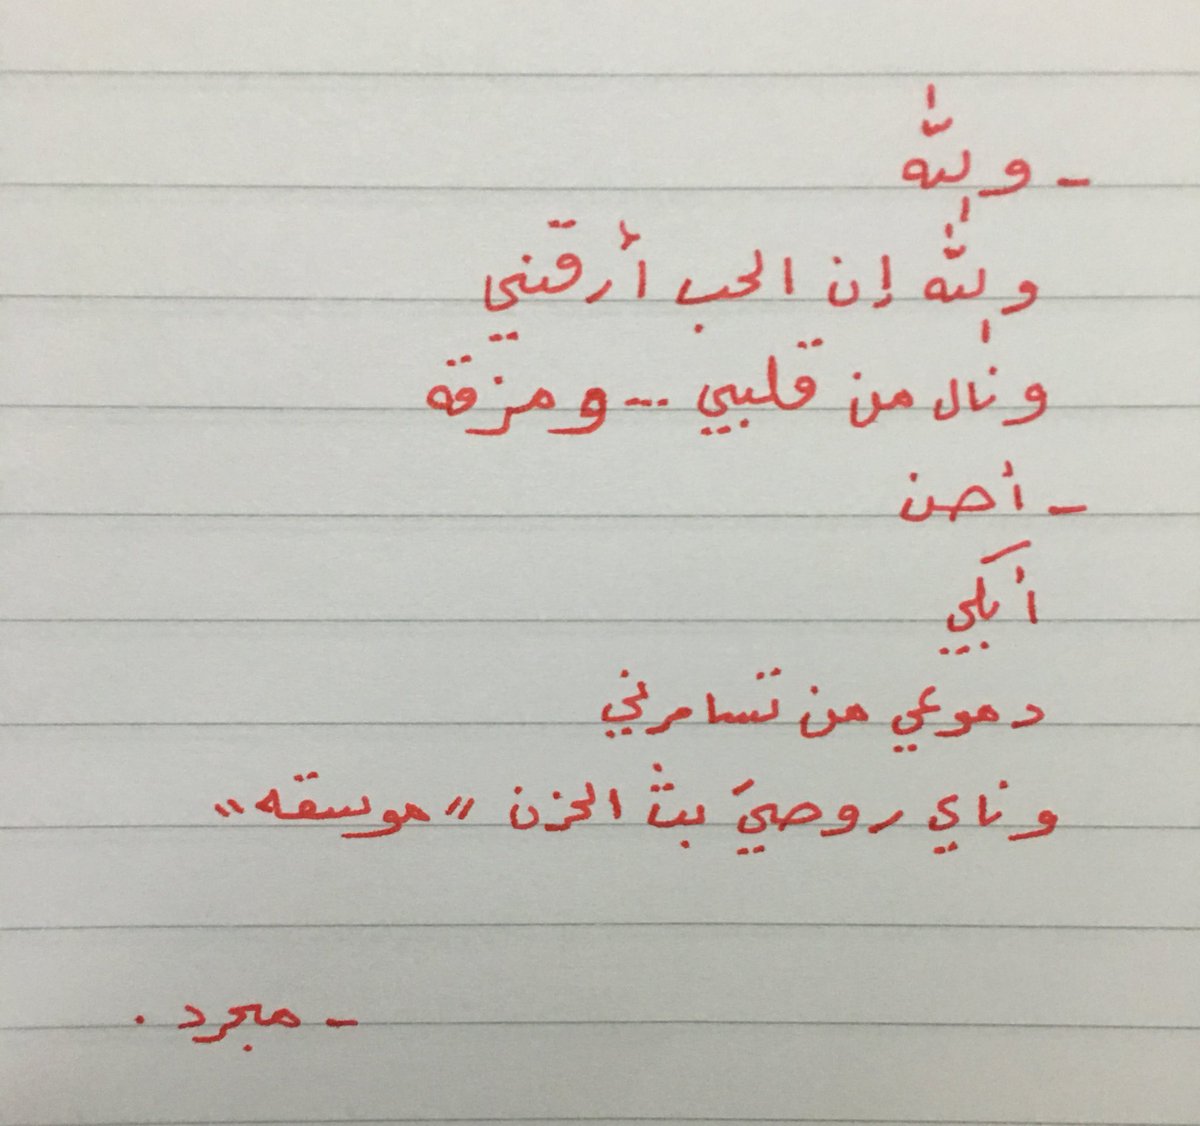 - وللّٰهِ
وللّٰهِ إن الحب أرقني
ونال من قلبي ... ومزقه
- أحن
أبكي
دموعي من تسامرني
وناي روحيَ بثّ الحزن "موسقه"
- مجرد .